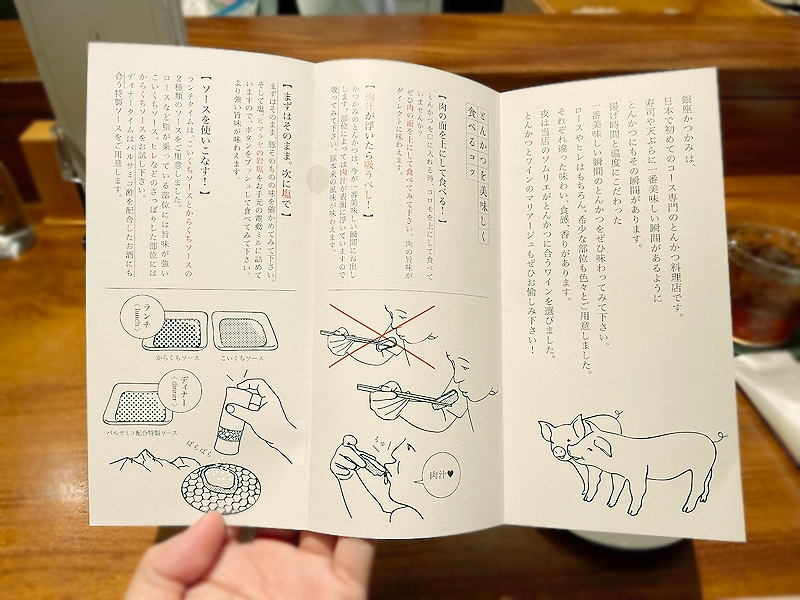 銀座かつかみは、
日本で初めてのコース専門のとんかつ料理店です。
寿司や天ぷらに一番美味しい瞬間があるように
とんかつにもその瞬間があります。
揚げ時間と温度にこだわった
一番美味しい瞬間のとんかつをぜひ味わってみて下さい。
ロースやヒレはもちろん、希少な部位も色々とご用意しました。
それぞれ違った味わい、食感、香りがあります。
夜は当店のソムリエがとんかつに合うワインを選びました。
とんかつとワインのマリアージュもぜひお愉しみ下さい！
とんかつを美味しく
食べるコツ
【肉の面を上にして食べる！】
とんかつを口に入れる時、コロモを上にして食べて
いませんか？
ぜひ肉の面を上にして食べてみて下さい。肉の旨味が
ダイレクトに味わえます。
【肉汁が浮いたら吸うべし！】
かつかみのとんかつは、今が一番美味しい瞬間にお出し
します。部位によっては肉汁が表面に浮いていますので
吸ってみて下さい。豚本来の風味が味わえます。
【まずはそのまま。次に塩で】
まずはそのまま、豚そのものの味を確かめてみて下さい。
そして塩。ヒマラヤの岩塩をお手元の電動ミルに詰めて
いますので、ボタンをプッシュして食べてみて下さい。
より強い旨味が味わえます。
【ソースを使いこなす！】
ランチタイムは、こいくちソースとからくちソースの
2種類のソースをご用意しました。
ロースなど脂が乗っている部位には旨味が強い
こいくちソースを、ヒレなどのさっぱりした部位には
からくちソースをお試し下さい。
ディナータイムはバルサミコ酢を配合したお酒にも
合う特製ソースをご用意します。
ランチ
(lunch)
からくちソース
こいくちソース
ディナー
(dinner)
バルサミコ配合特製ソース
ぱらぱら
ちゅー
肉汁♥